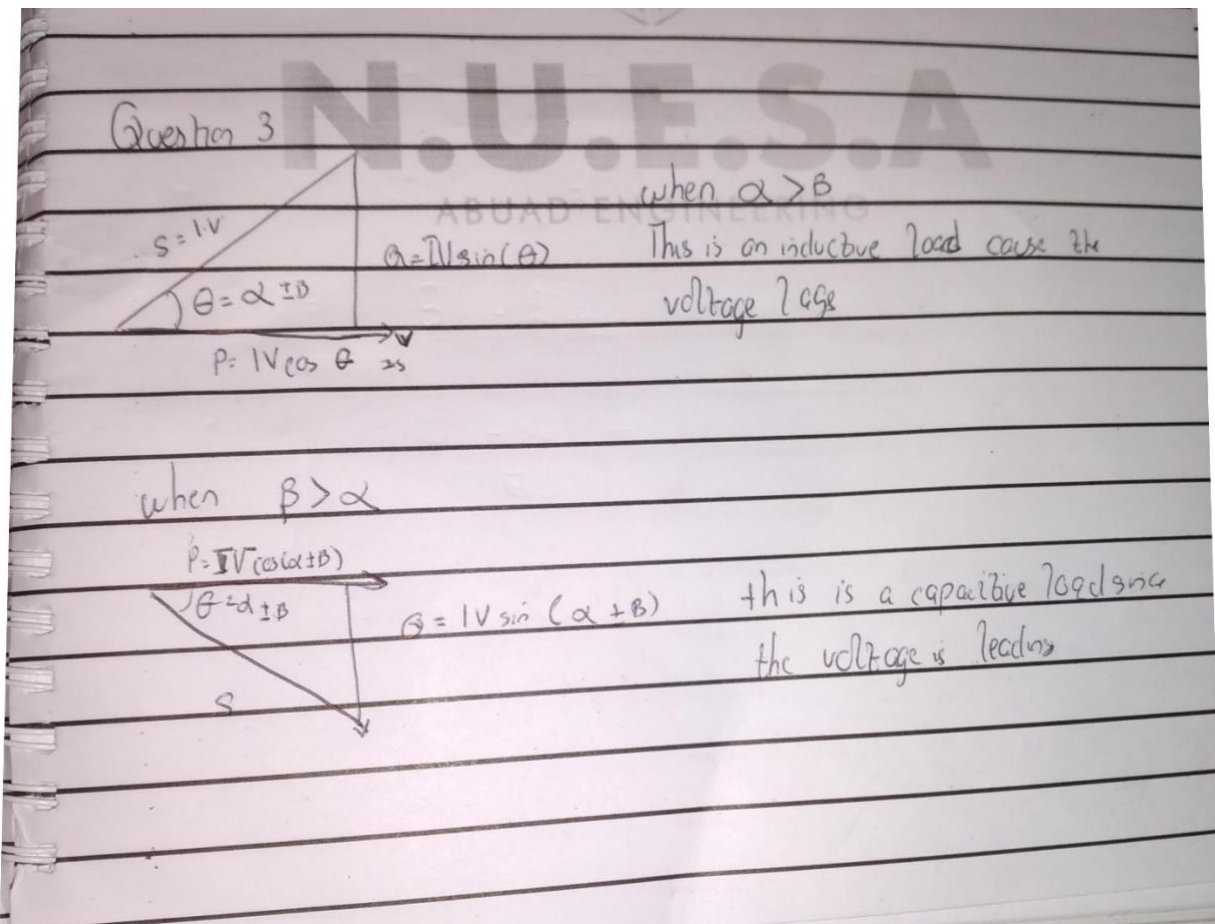 N.U.E.S.A
ABUAD ENGINEERING
Question 3
when α > β
S = I.V
Q = IV sin(θ)
This is an inductive load cause the
θ = α ± β
voltage lags
P = IV cos θ
when β > α
P = IV cos(α ± β)
θ = α ± β
Q = IV sin (α ± β)
this is a capacitive load since
the voltage is leading
S